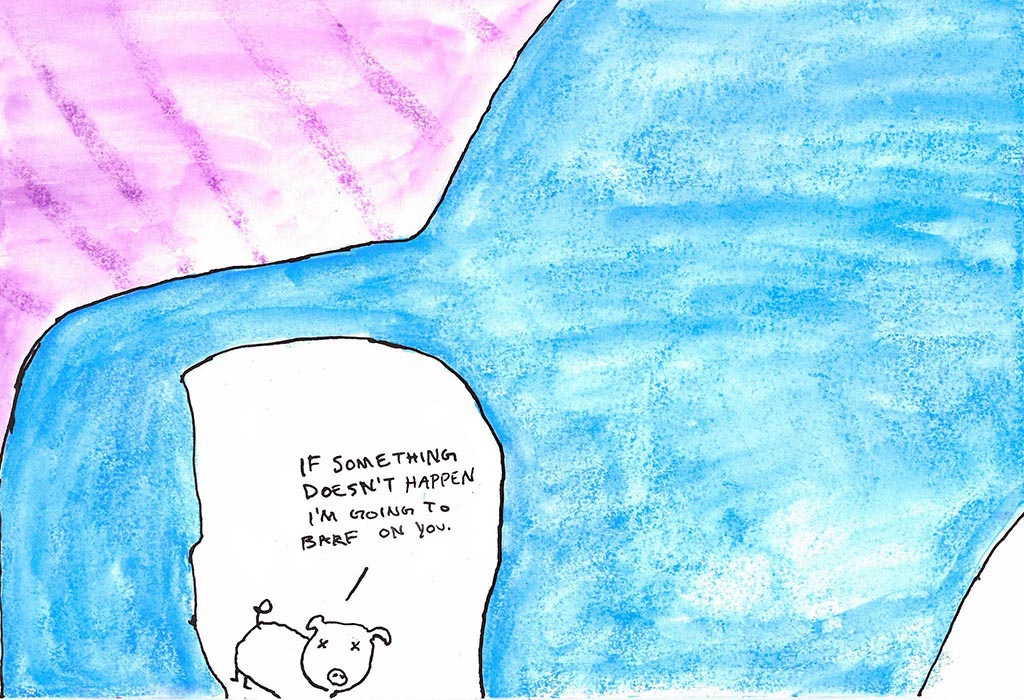 IF SOMETHING
DOESN'T HAPPEN
I'M GOING TO
BARF ON YOU.